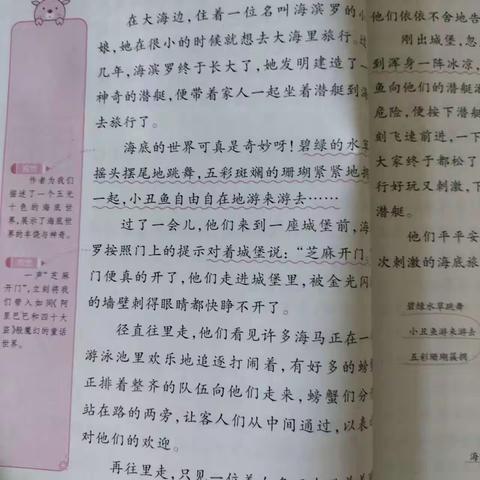 在大海边，住着一位名叫海滨罗的小
娘，她在很小的时候就想去大海里旅行。
几年，海滨罗终于长大了，她发明建造了一
神奇的潜艇，便带着家人一起坐着潜艇到海
去旅行了。
海底的世界可真是奇妙呀！碧绿的水草
摇头摆尾地跳舞，五彩斑斓的珊瑚紧紧地拥
一起，小丑鱼自由自在地游来游去……
过了一会儿，他们来到一座城堡前，海
罗按照门上的提示对着城堡说：“芝麻开门
门便真的开了，他们走进城堡里，被金光闪
的墙壁刺得眼睛都快睁不开了。
径直往里走，他们看见许多海马正在一
游泳池里欢乐地追逐打闹着，有好多的螃
正排着整齐的队伍向他们走来，螃蟹们分
站在路的两旁，让客人们从中间通过，以表
对他们的欢迎。
再往里走，只见一位
作者为我们
描述了一个五光
十色的海底世
界，展示了海底世
界的丰饶与神奇。
一声“芝麻
开门”，立刻将我
们带入如同《阿
里巴巴和四十大
盗》般魔幻的童话
世界。
他们依依不舍地告
刚出城堡，忽
到浑身一阵冰凉，
鱼向他们的潜艇
危险，便按下潜艇
刻飞速前进，一下
大家终于都松了
行好玩又刺激，下
潜艇。
他们平平安
次刺激的海底旅
碧绿水草跳舞
小丑鱼游来游去
五彩珊瑚簇拥
海